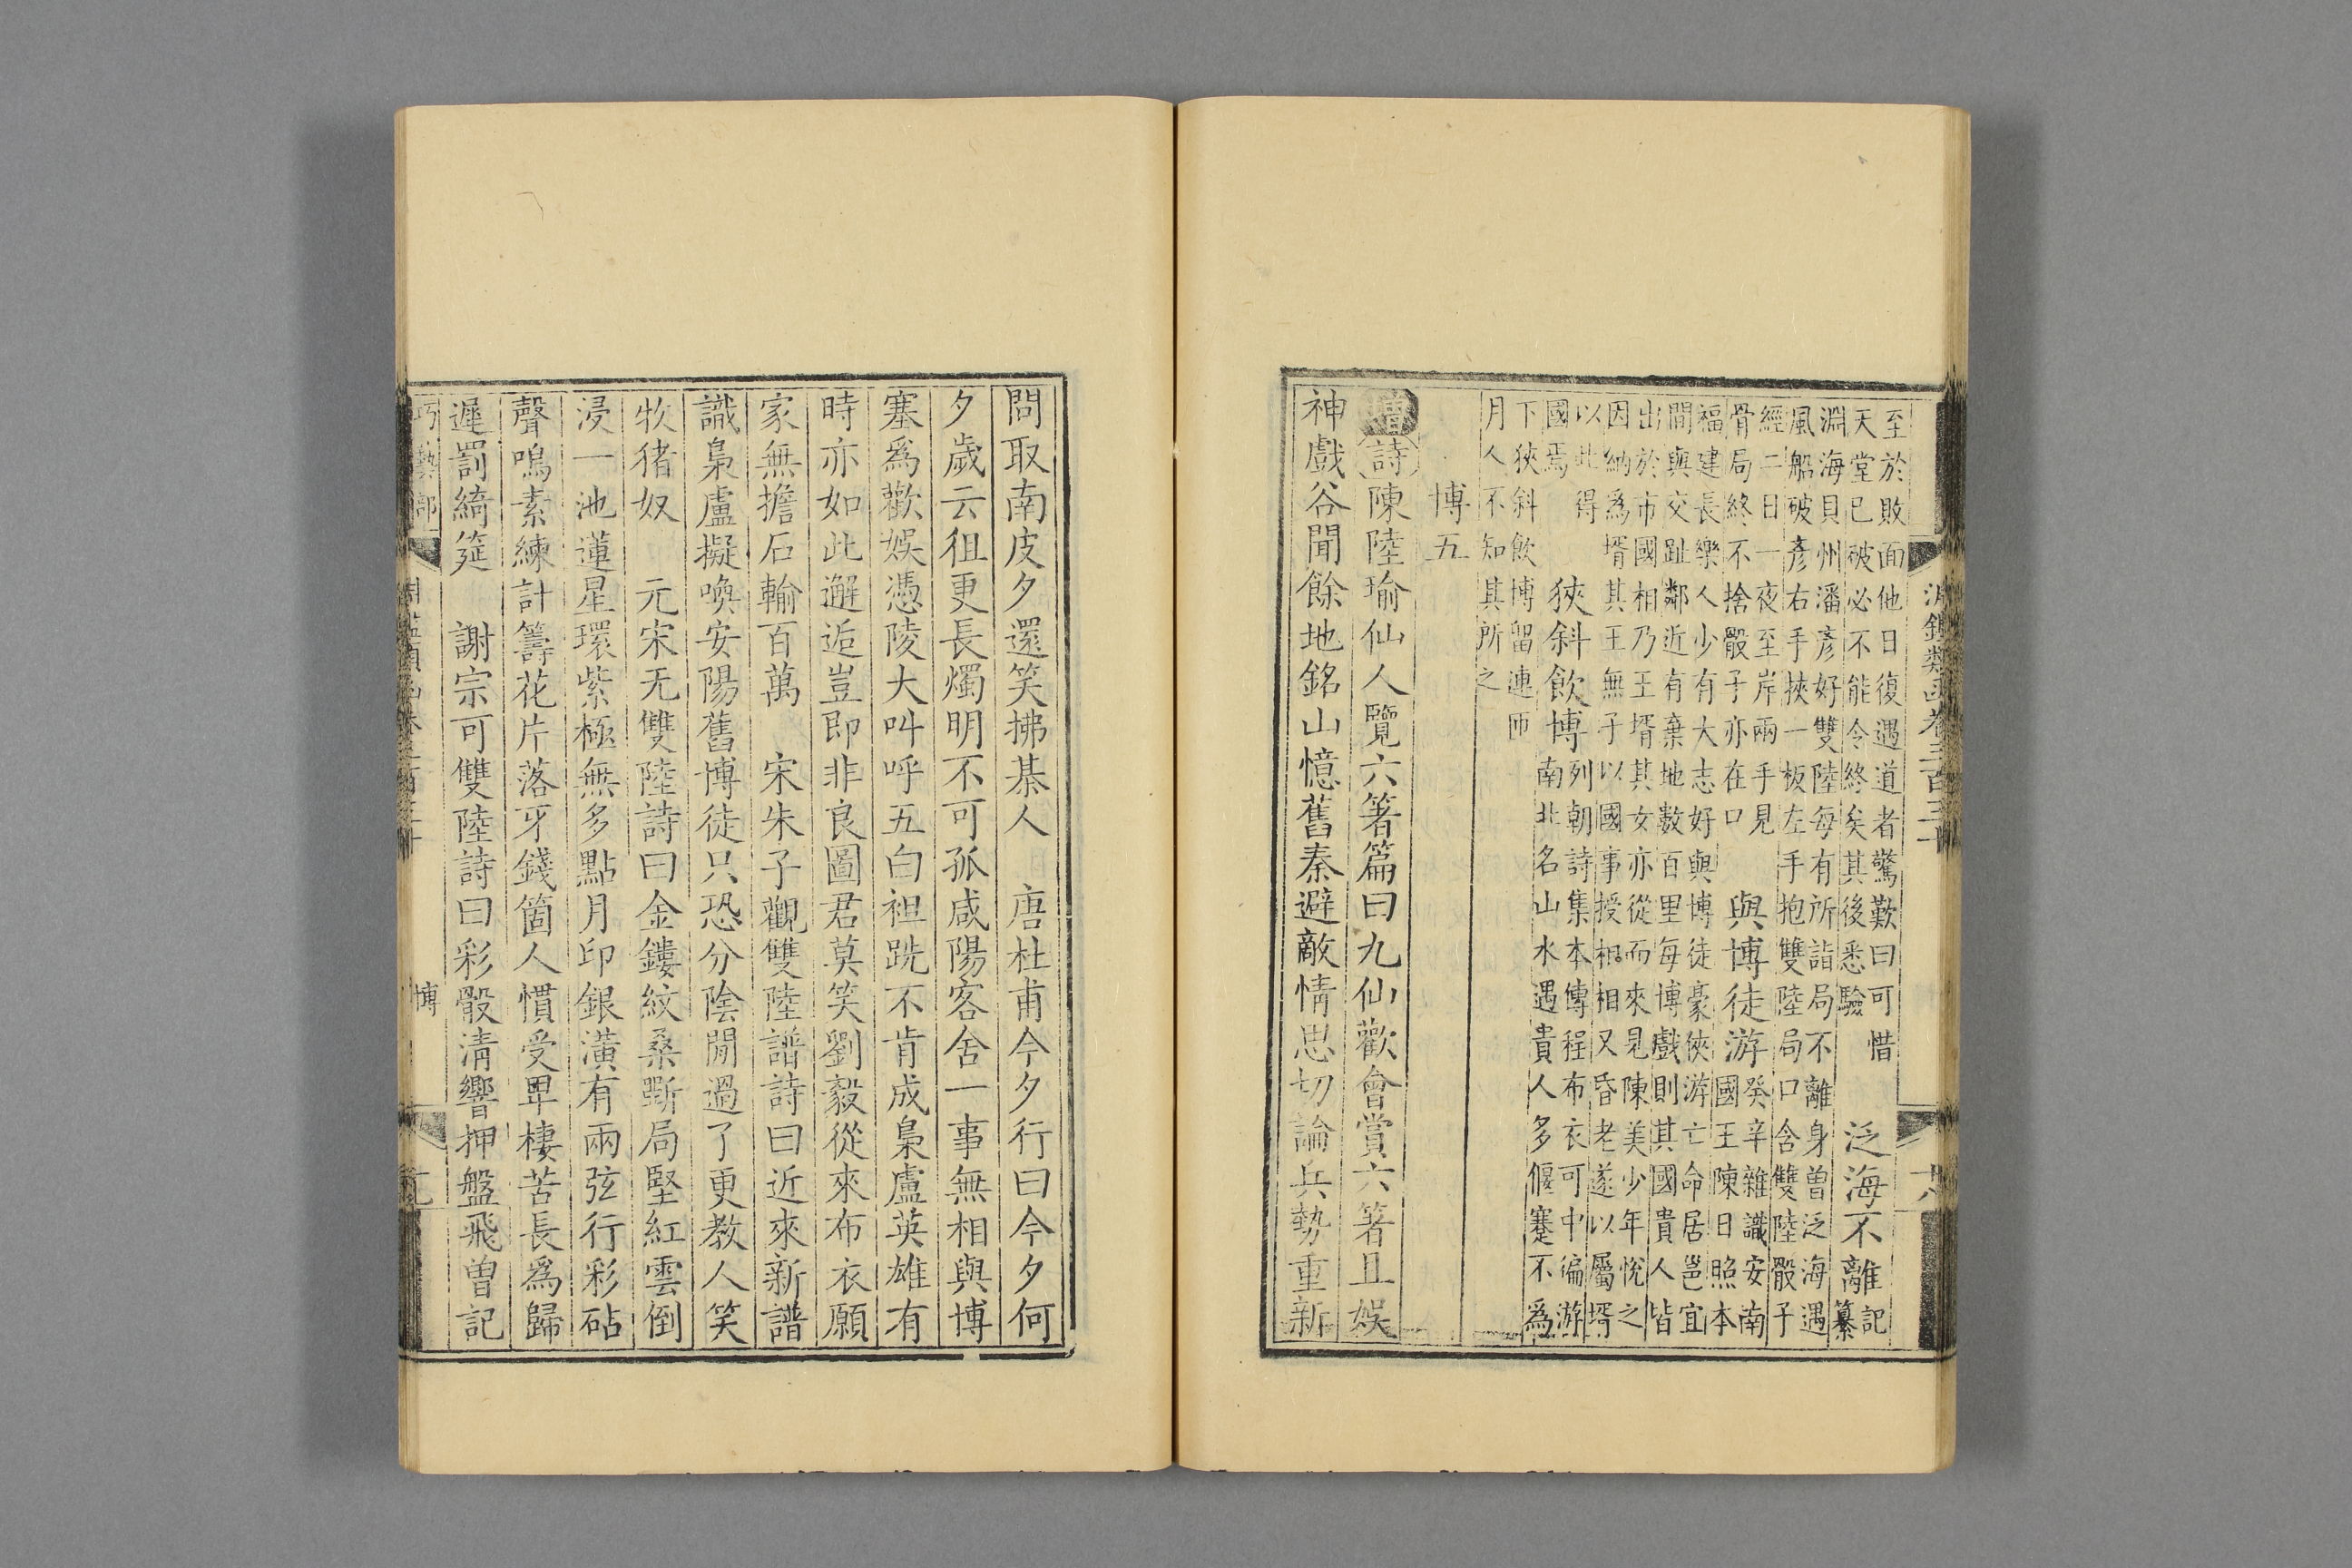 淵鑑類函卷三百三十
十八
至於敗面他日復遇道者驚歎曰可惜
天堂已破必不能令終矣其後悉驗
泛海不離
記
纂
淵海貝州潘彥好雙陸每有所詣局不離身曾泛海遇
風船破彥右手挾一板左手抱雙陸局口含雙陸骰子
經二日一夜至岸兩手見
骨局終不捨骰子亦在口
與博徒游
癸辛雜識安南
國王陳日照本
福建長樂人少有大志好與博徒豪俠游亡命居邕宜
間與交趾鄰近有棄地數百里每博戲則其國貴人皆
出於市國相乃王壻其女亦從而來見陳美少年悅之
因納爲壻其王無子以國事授相相又昏老遂以屬壻
以此得
國焉
狹斜飲博
列朝詩集本傳程布衣可中徧游
南北名山水遇貴人多偃蹇不爲
下狹斜飲博留連帀
月人不知其所之
博五
增詩陳陸瑜仙人覽六箸篇曰九仙歡會賞六箸且娛
神戲谷聞餘地銘山憶舊秦避敵情思切論兵勢重新
問取南皮夕還笑拂棊人　唐杜甫今夕行曰今夕何
夕歲云徂更長燭明不可孤咸陽客舍一事無相與博
塞爲歡娛憑陵大叫呼五白袒跣不肯成梟盧英雄有
時亦如此邂逅豈即非良圖君莫笑劉毅從來布衣願
家無擔石輸百萬　宋朱子觀雙陸譜詩曰近來新譜
識梟盧擬喚安陽舊博徒只恐分陰閒過了更教人笑
牧猪奴　元宋无雙陸詩曰金鏤紋桑斲局堅紅雲倒
浸一池蓮星環紫極無多點月印銀潢有兩弦行彩砧
聲鳴素練計籌花片落牙錢箇人慣受卑棲苦長爲歸
遲罰綺筵　謝宗可雙陸詩曰彩骰清響押盤飛曾記
巧藝部
博